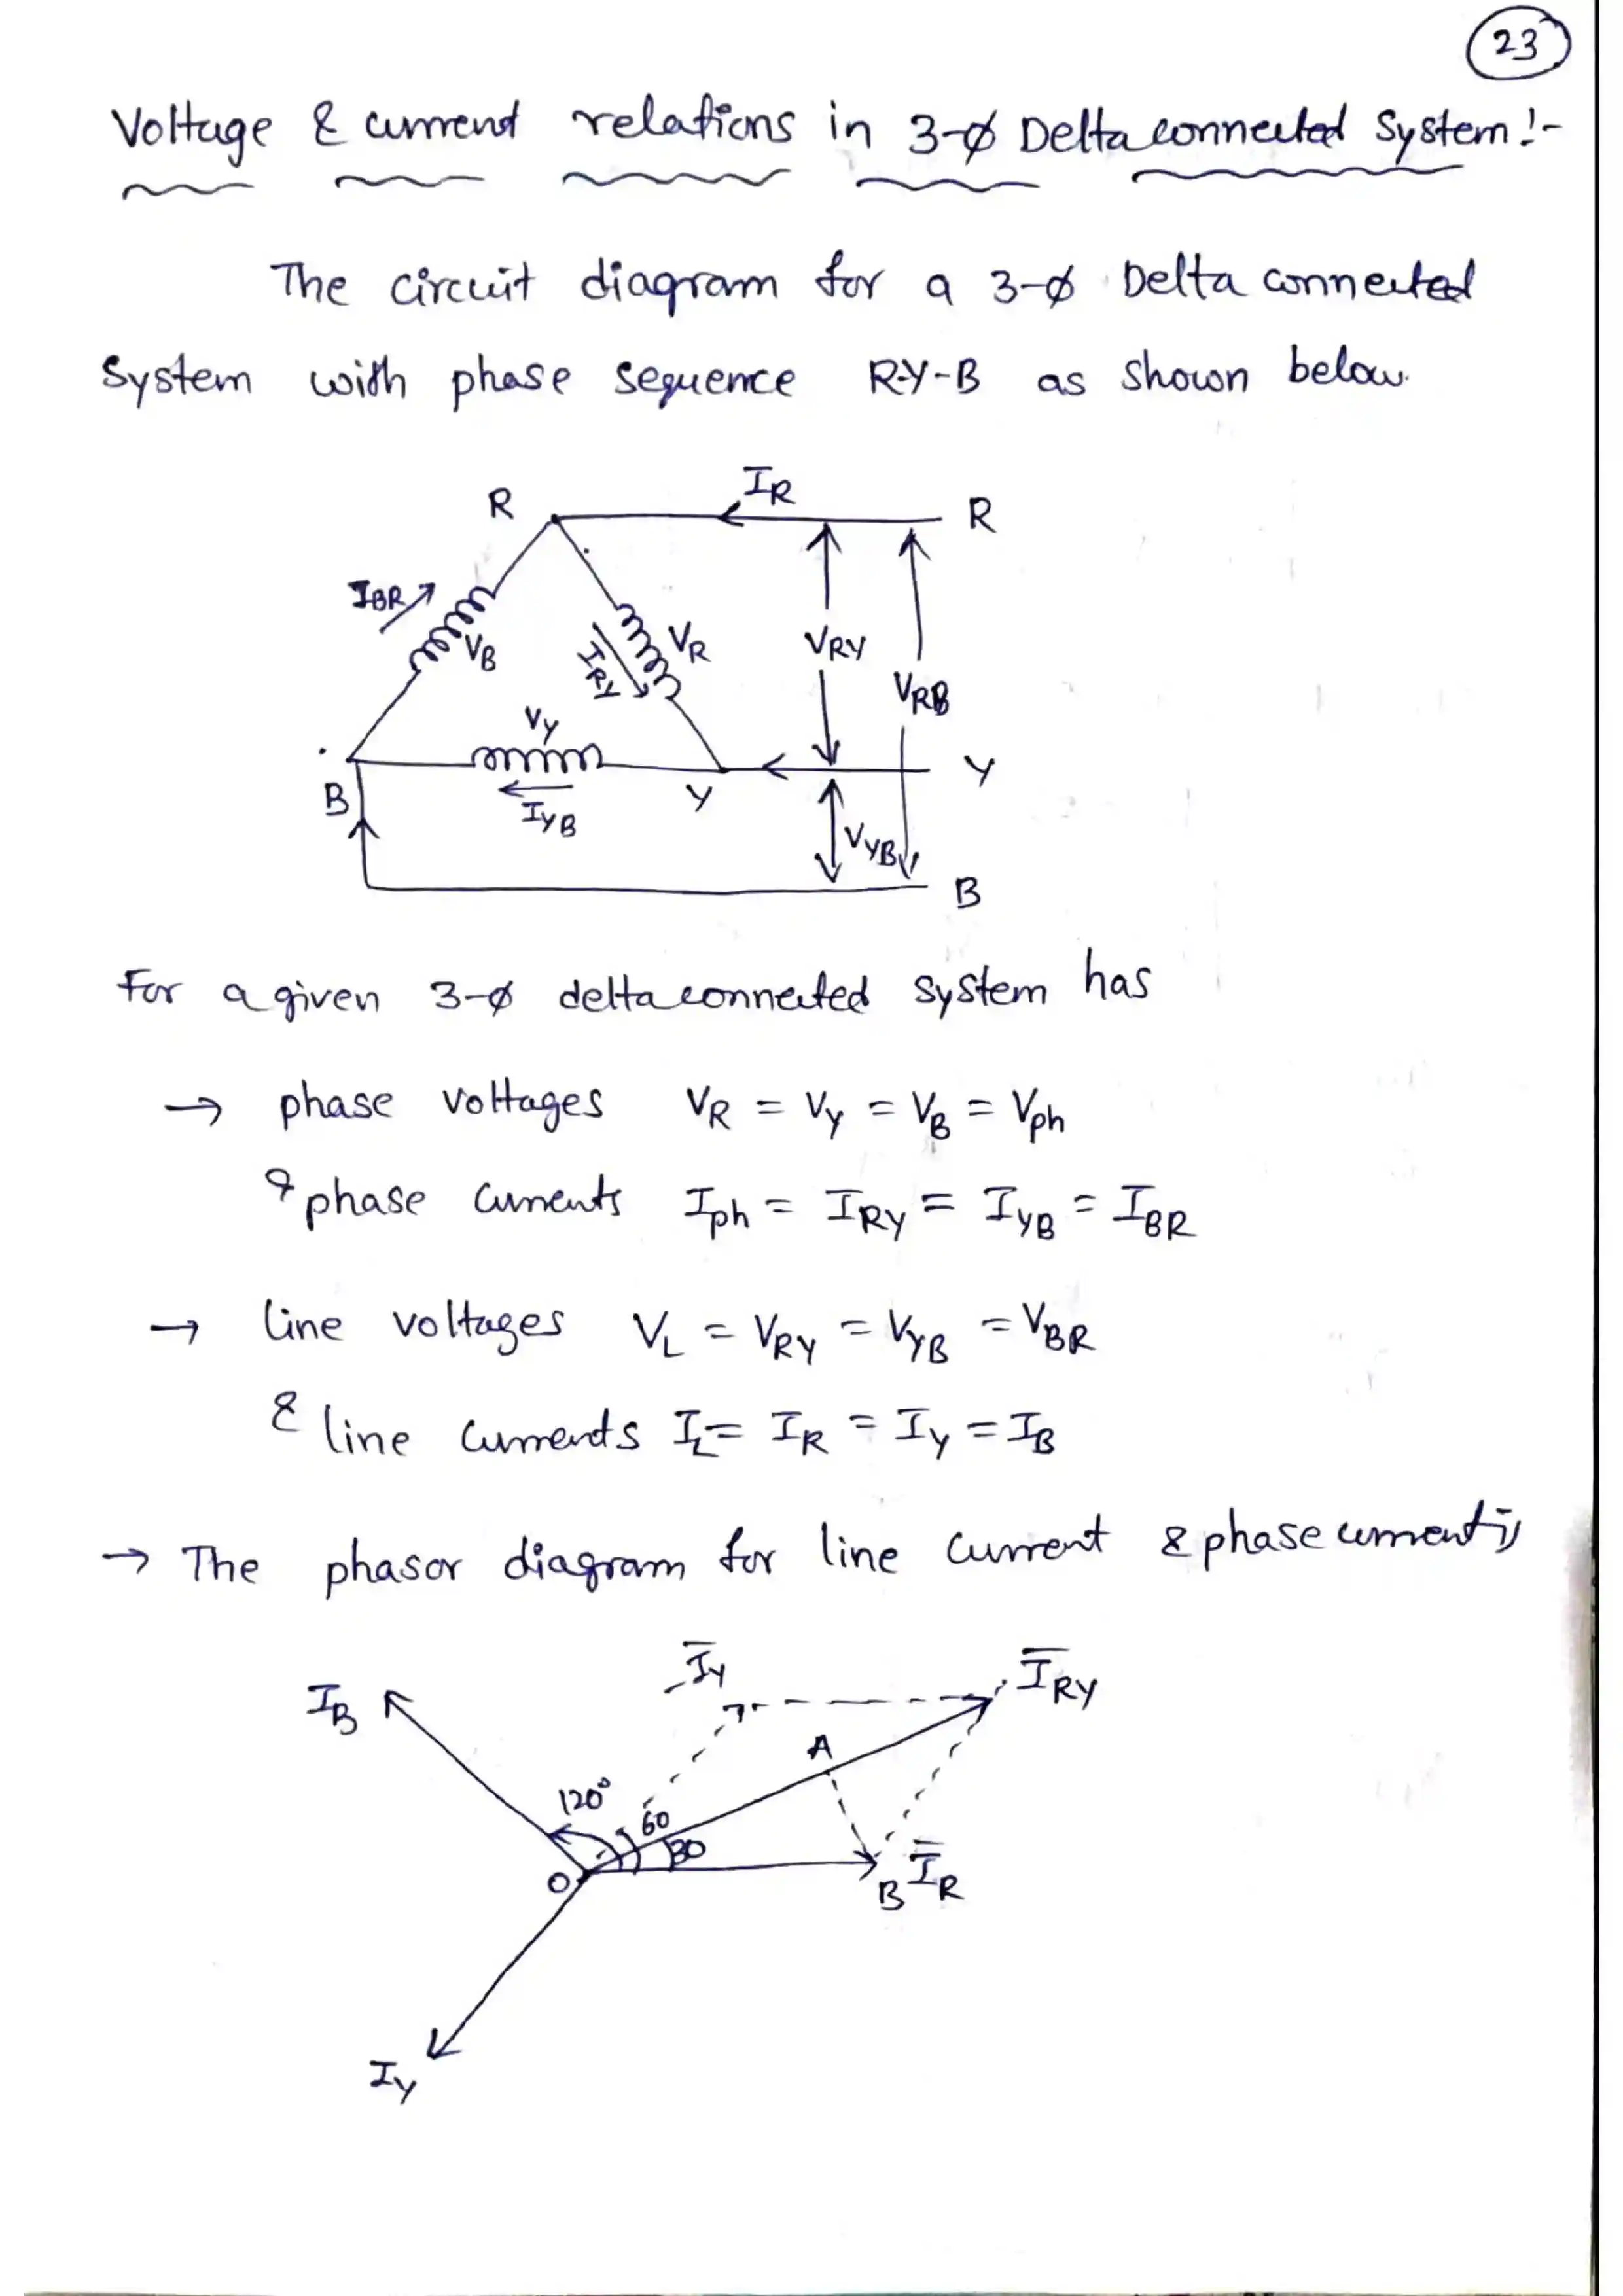 23
Voltage & current relations in 3-ø Delta connected System:-
The circuit diagram for a 3-ø Delta connected
System with phase sequence R-Y-B as shown below.
R IR R
IBR VB VR IRY VRY VRB
VY
B IYB Y Y
VYB
B
For a given 3-ø delta connected system has
→ phase voltages VR = VY = VB = Vph
& phase currents Iph = IRY = IYB = IBR
→ line voltages VL = VRY = VYB = VBR
& line currents IL = IR = IY = IB
→ The phasor diagram for line current & phase current is
IB -I̅Y I̅RY
A
120° 60 30
O B I̅R
IY